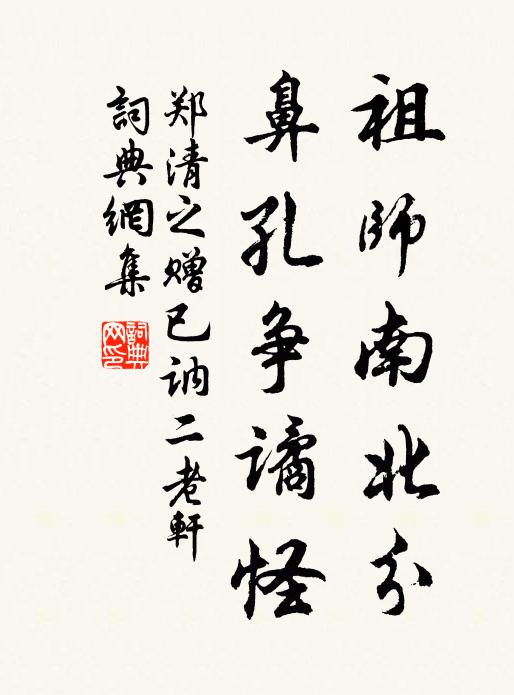 祖師南北分
鼻孔争譎怪
郑清之赠已讷二老軒
詞典網集
詞典网印